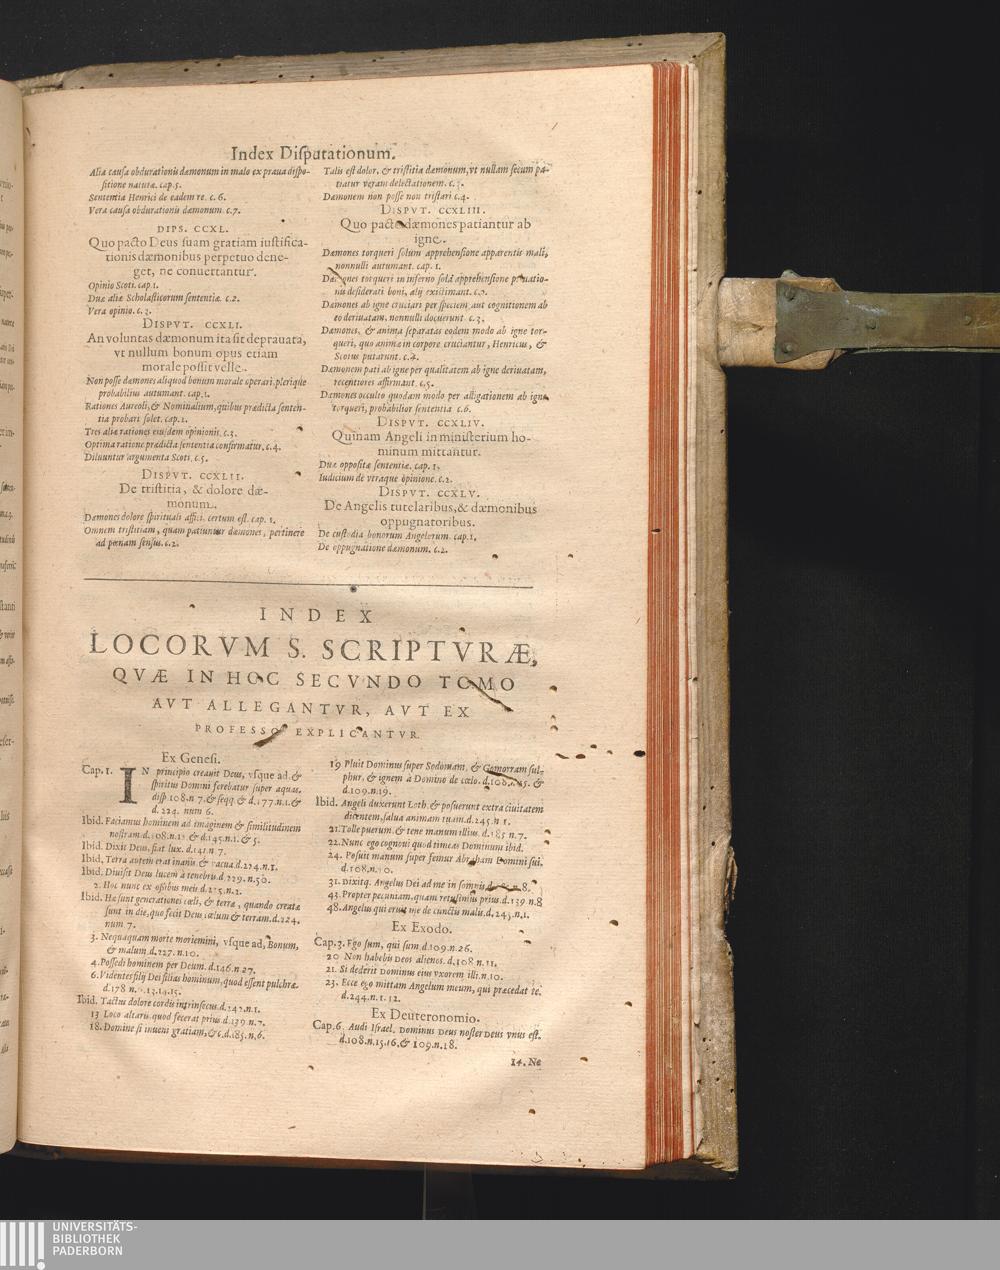 Index Disputationum.
Alia causa obdurationis dæmonum in malo ex praua dispo-
sitione naturæ. cap.5.
Sententia Henrici de eadem re. c.6.
Vera causa obdurationis dæmonum. c.7.
DIPS. CCXL.
Quo pacto Deus suam gratiam iustifica-
tionis dæmonibus perpetuo dene-
get, ne conuertantur.
Opinio Scoti. cap.1.
Duæ aliæ Scholasticorum sententiæ. c.2.
Vera opinio. c.3.
DISPVT. CCXLI.
An voluntas dæmonum ita sit deprauata,
vt nullum bonum opus etiam
morale possit velle.
Non posse dæmones aliquod bonum morale operari, plerique
probabilius autumant. cap.1.
Rationes Aureoli, & Nominalium, quibus prædicta senten-
tia probari solet. cap.2.
Tres aliæ rationes eiusdem opinionis. c.3.
Optima ratione prædicta sententia confirmatur. c.4.
Diluuntur argumenta Scoti. c.5.
DISPVT. CCXLII.
De tristitia, & dolore dæ-
monum.
Dæmones dolore spirituali affici, certum est. cap. 1.
Omnem tristitiam, quam patiuntur dæmones, pertinere
ad pœnam sensus. c.2.
Talis est dolor, & tristitia dæmonum, vt nullam secum pa-
tiatur veram delectationem. c.3.
Dæmonem non posse non tristari c.4.
DISPVT. CCXLIII.
Quo pacto dæmones patiantur ab
igne.
Dæmones torqueri solum apprehensione apparentis mali,
nonnulli autumant. cap. 1.
Dæmones torqueri in inferno sola apprehensione priuatio-
nis desiderati boni, alij existimant. c.2.
Dæmones ab igne cruciari per speciem, aut cognitionem ab
eo deriuatam, nonnulli docuerunt. c.3.
Dæmones, & anima separatas eodem modo ab igne tor-
queri, quo anima in corpore cruciantur, Henricus, &
Scotus putarunt. c.4.
Dæmonem pati ab igne per qualitatem ab igne deriuatam,
recentiores affirmant. c.5.
Dæmones occulto quodam modo per alligationem ab igne
torqueri, probabilior sententia c.6.
DISPVT. CCXLIV.
Quinam Angeli in ministerium ho-
minum mittantur.
Duæ oppositæ sententiæ. cap. 1.
Iudicium de vtraque opinione. c.2.
DISPVT. CCXLV.
De Angelis tutelaribus, & dæmonibus
oppugnatoribus.
De custodia bonorum Angelorum. cap.1.
De oppugnatione dæmonum. c.2.
INDEX
LOCORVM S. SCRIPTVRÆ,
QVÆ IN HOC SECVNDO TOMO
AVT ALLEGANTVR, AVT EX
PROFESSO EXPLICANTVR.
Ex Genesi.
Cap. 1. IN principio creauit Deus, vsque ad, &
spiritus Domini ferebatur super aquas.
disp. 108.n 7. & seqq & d.177.n.1.&
d. 224. num 6.
Ibid. Faciamus hominem ad imaginem & similitudinem
nostram. d.108.n.12 & d.145.n.1. & 5.
Ibid. Dixit Deus, fiat lux. d.141.n 7.
Ibid, Terra autem erat inanis & vacua. d.224.n.1.
Ibid. Diuisit Deus lucem à tenebris. d.229.n.50.
2. Hoc nunc ex ossibus meis d.
Ibid. Hæ sunt generationes cæli, & terræ, quando creatæ
sunt in die, quo fecit Deus cœlum & terram. d.224.
num 7.
3. Nequaquam morte moriemini, vsque ad, Bonum,
& malum. d.227. n.10.
4. Possedi hominem per Deum. d.146.n 27.
6. Videntes filij Dei filias hominum, quod essent pulchræ.
d.178 n. 13.14.15.
Ibid. Tactus dolore cordis intrinsecus. d.
13 Loco altaris, quod fecerat prius. d.139 n.
18. Domine si inueni gratiam, &c. d.185. n.6.
19 Pluit Dominus super Sodomam, & Gomorram sul-
phur, & ignem à Domino de cœlo. &
d.109.n.19.
Ibid. Angeli duxerunt Loth, & posuerunt extra ciuitatem
dicentem, salua animam tuam. d.245.n 1.
21. Tolle puerum, & tene manum illius. d.185 n.7.
22. Nunc ego cognoui quod timeas Dominum ibid.
24. Posuit manum super femur Abraham Domini sui.
d.108.n.
31. Dixitq. Angelus Dei ad me in somnis, n.8.
43. Propter pecuniam, quam retulimus prius. d.139 n.8
48. Angelus qui eruit me de cunctis malis. d.245.n.1.
Ex Exodo.
Cap. 3. Ego sum, qui sum. d.109.n.26.
20 Non habebis Deos alienos. d.108 n.11.
21. Si dederit Dominus eius vxorem illi. n.10.
23. Ecce ego mittam Angelum meum, qui præcedat te.
d.244.n.1.12.
Ex Deuteronomio.
Cap. 6. Audi Israel, Dominus Deus noster Deus vnus est.
d.108.n.15.16.& 109.n.18.
14. Ne
UNIVERSITÄTS-
BIBLIOTHEK
PADERBORN